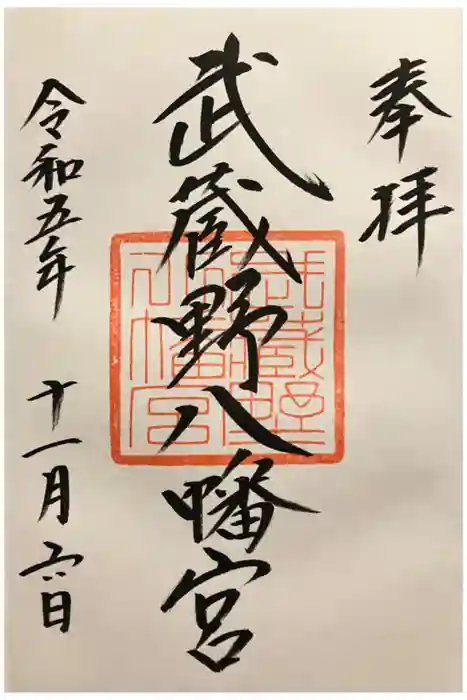 奉拝
武蔵野八幡宮
令和五年 十一月 六日